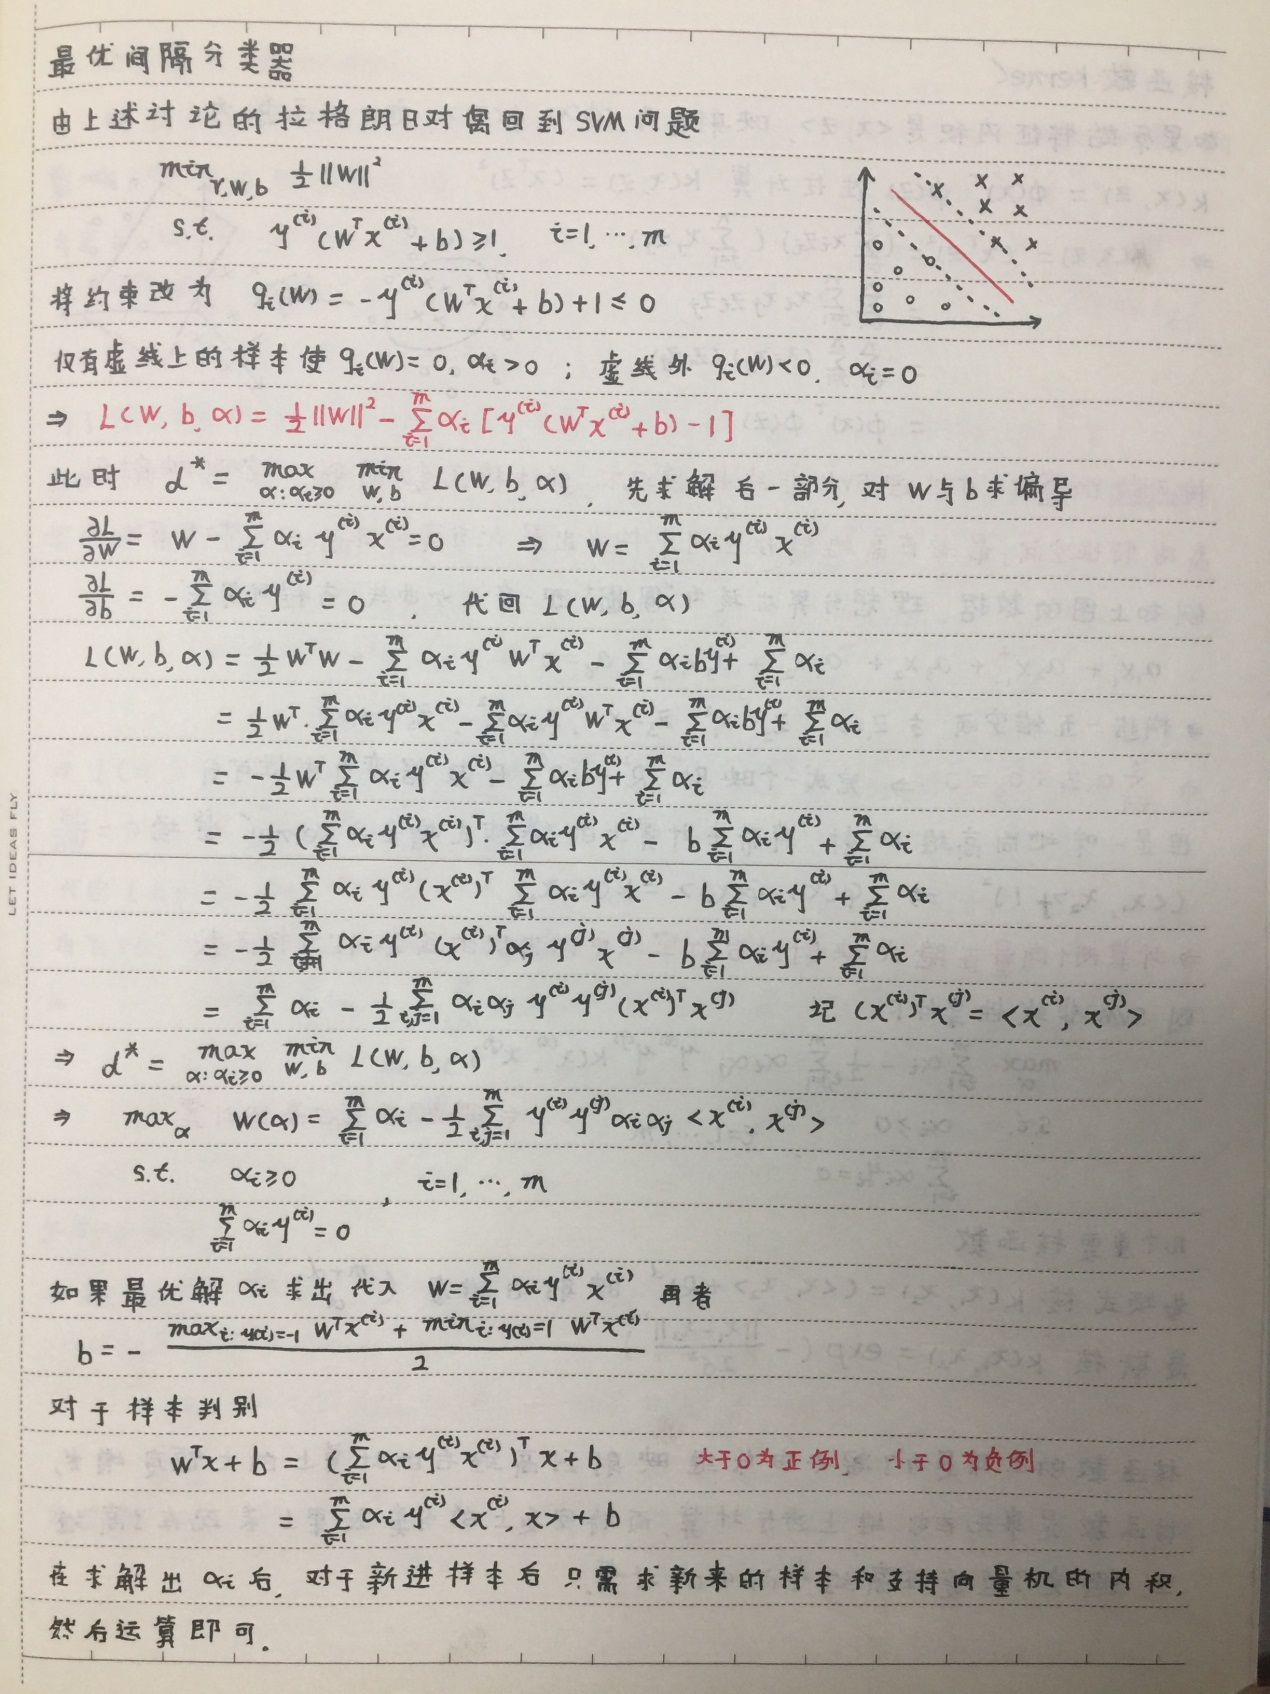 最优间隔分类器
由上述讨论的拉格朗日对偶回到SVM问题
min_{γ,w,b} ½||w||²
s.t. y^{(i)}(w^T x^{(i)}+b)≥1, i=1,…,m
将约束改为 g_i(w) = -y^{(i)}(w^T x^{(i)}+b)+1 ≤ 0
仅有虚线上的样本使 g_i(w)=0, α_i>0 ; 虚线外 g_i(w)<0, α_i=0
⇒ L(w, b, α) = ½||w||² - Σ_{i=1}^m α_i [y^{(i)}(w^T x^{(i)}+b)-1]
此时 d* = max_{α:α_i≥0} min_{w,b} L(w, b, α), 先求解后一部分, 对 w与b求偏导
∂L/∂w = w - Σ_{i=1}^m α_i y^{(i)} x^{(i)} = 0 ⇒ w = Σ_{i=1}^m α_i y^{(i)} x^{(i)}
∂L/∂b = -Σ_{i=1}^m α_i y^{(i)} = 0, 代回 L(w, b, α)
L(w, b, α) = ½ w^T w - Σ_{i=1}^m α_i y^{(i)} w^T x^{(i)} - Σ_{i=1}^m α_i b y^{(i)} + Σ_{i=1}^m α_i
= ½ w^T · Σ_{i=1}^m α_i y^{(i)} x^{(i)} - Σ_{i=1}^m α_i y^{(i)} w^T x^{(i)} - Σ_{i=1}^m α_i b y^{(i)} + Σ_{i=1}^m α_i
= -½ w^T Σ_{i=1}^m α_i y^{(i)} x^{(i)} - Σ_{i=1}^m α_i b y^{(i)} + Σ_{i=1}^m α_i
= -½ (Σ_{i=1}^m α_i y^{(i)} x^{(i)})^T · Σ_{i=1}^m α_i y^{(i)} x^{(i)} - b Σ_{i=1}^m α_i y^{(i)} + Σ_{i=1}^m α_i
= -½ Σ_{i=1}^m α_i y^{(i)} (x^{(i)})^T Σ_{i=1}^m α_i y^{(i)} x^{(i)} - b Σ_{i=1}^m α_i y^{(i)} + Σ_{i=1}^m α_i
= -½ Σ^m α_i y^{(i)} (x^{(i)})^T α_j y^{(j)} x^{(j)} - b Σ_{i=1}^m α_i y^{(i)} + Σ_{i=1}^m α_i
= Σ_{i=1}^m α_i - ½ Σ_{i,j=1}^m α_i α_j y^{(i)} y^{(j)} (x^{(i)})^T x^{(j)} 记 (x^{(i)})^T x^{(j)} = <x^{(i)}, x^{(j)}>
⇒ d* = max_{α:α_i≥0} min_{w,b} L(w, b, α)
⇒ max_α W(α) = Σ_{i=1}^m α_i - ½ Σ_{i,j=1}^m y^{(i)} y^{(j)} α_i α_j <x^{(i)}, x^{(j)}>
s.t. α_i≥0, i=1,…,m
Σ_{i=1}^m α_i y^{(i)} = 0
如果最优解 α_i 求出 代入 w = Σ_{i=1}^m α_i y^{(i)} x^{(i)} 再者
b = - (max_{i:y(i)=-1} w^T x^{(i)} + min_{i:y(i)=1} w^T x^{(i)}) / 2
对于样本判别
w^T x + b = (Σ_{i=1}^m α_i y^{(i)} x^{(i)})^T x + b 大于0为正例, 小于0为负例
= Σ_{i=1}^m α_i y^{(i)} <x^{(i)}, x> + b
在求解出 α_i 后, 对于新进样本后 只需求新来的样本和支持向量机的内积,
然后运算即可.
LET IDEAS FLY